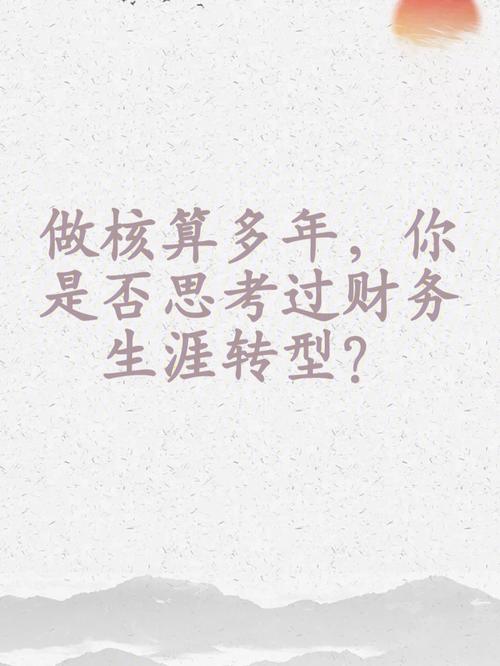 做核算多年，你
是否思考过财务
生涯转型？